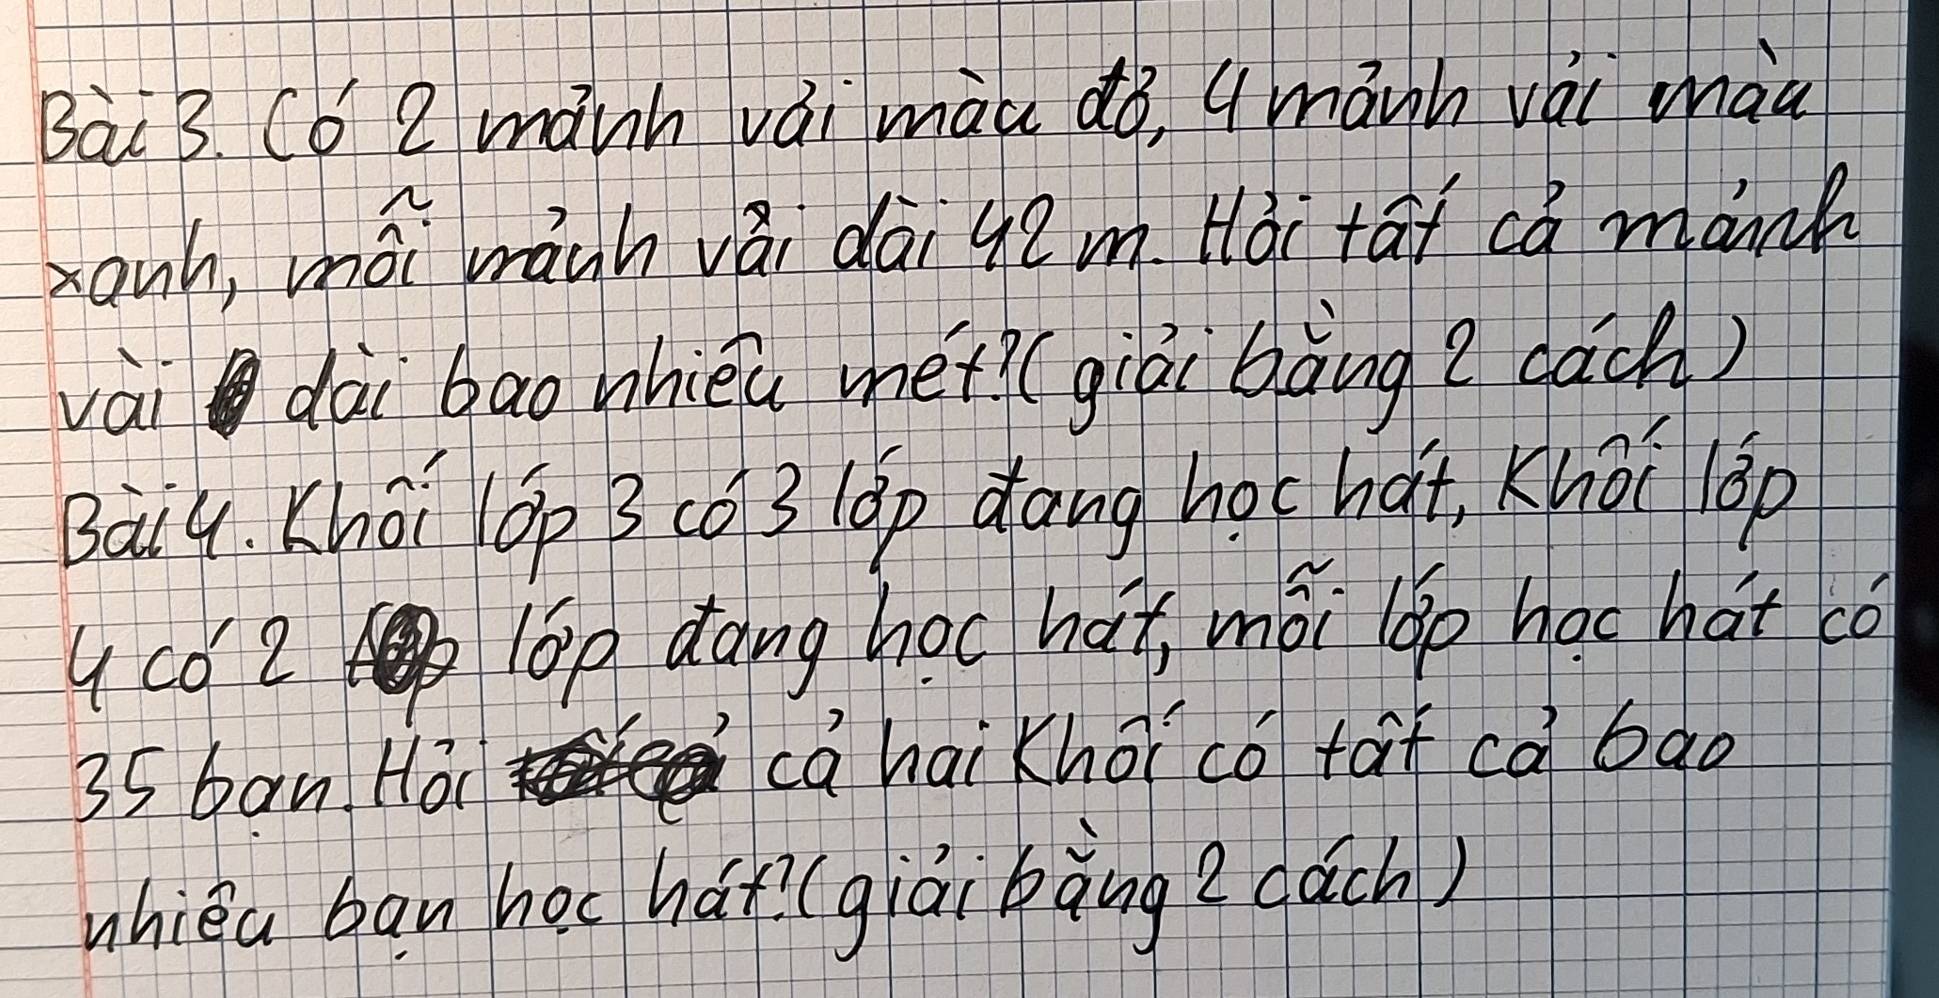 Bài 3. Có 2 mảnh vải màu đỏ, 4 mảnh vải màu
xanh, mỗi mảnh vải dài 42 m. Hỏi tất cả mảnh
vải dài bao nhiêu mét? (giải bằng 2 cách)
Bài 4. Khối lớp 3 có 3 lớp đang học hát, Khối lớp
4 có 2 lớp đang học hát, mỗi lớp học hát có
35 bạn. Hỏi cả hai khối có tất cả bao
nhiêu bạn học hát? (giải bằng 2 cách)